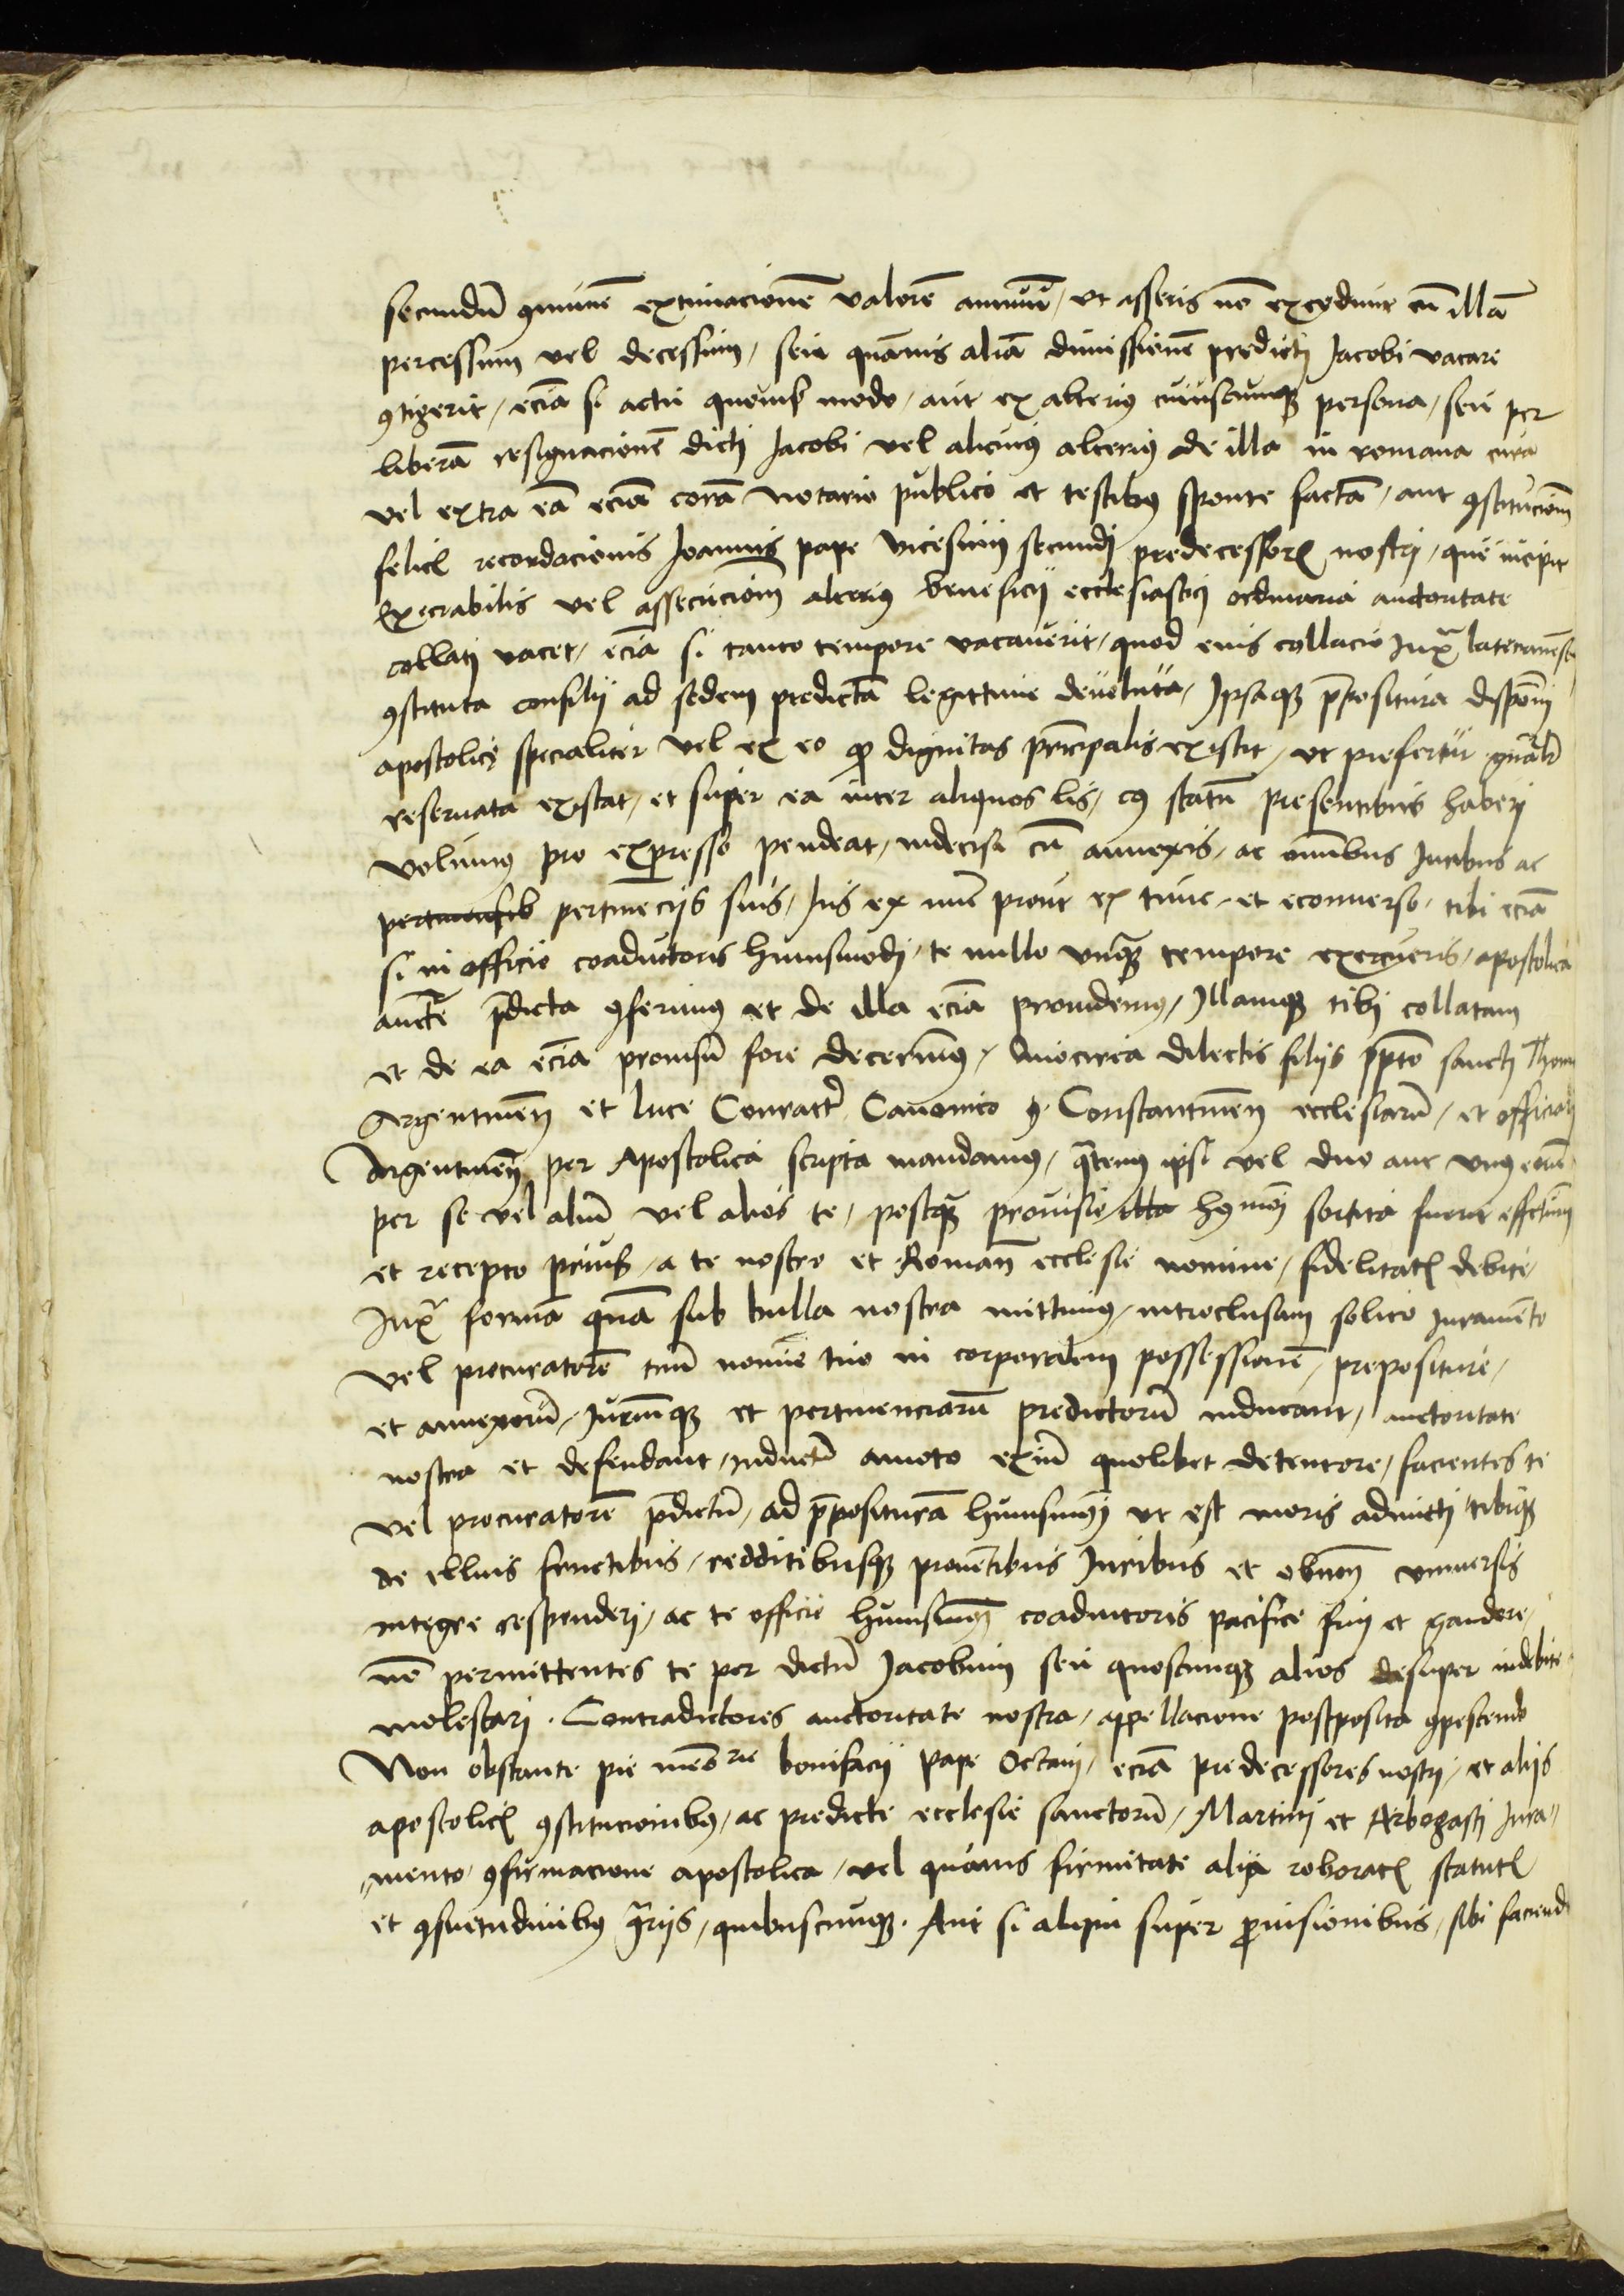 secundū ꝯmunē extimacionē valorē annuū / vt asseris nō excedunt cū illā
per cessum vel decessum / seu quamuis aliā dimissionē predicti Jacobi vacare
ꝯtigerit / eciā si actu quouis modo / aut ex alteriꝰ cuiuscumqꝫ persona / seu per
liberā resignacionē dicti Jacobi vel alicuiꝰ alteriꝰ de illa in romana curia
vel extra eā eciā corā notario publico et testibꝰ sponte factā / aut ꝯstitucionē
felicꝭ recordacionis Joannis pape vicesimi secundi predecessorꝭ nostri / que incipit
Execrabilis vel assecucionē alteriꝰ beneficij ecclesiastici ordinaria auctoritate
collati vacet / eciā si tanto tempore vacauerit / quod eius collacio Juxᵃ lateranēsis
ꝯstituta consilij ad sedem predictā legittime deuoluta / Ipsaqꝫ p̄positura disp̄oni
apostolice specialiter vel ex eo ꝙ dignitas principalis existit / vt prefertur gn̄alr̄
reseruata existat / et super ea inter aliquos lis / cꝰ statū presentibus haberi
volumꝰ pro expresso pendeat / indecisa cū annexis / ac om̄ibus Juribus ac
pertinensib pertinēcijs suis / Jus ex nūc prout ex tunc / et econuerso / tibi eciā
si in officio coadiutoris huiusmodi / te nullo vnqᵃꝫ tempore exercueris / apostolica
auctē p̄dicta ꝯferimꝰ et de illa eciā prouidemꝰ / Illamqꝫ tibi collatam
et de ea eciā prouisū fore decernimꝰ / Quocirca dilectis filijs p̄pto sancti Thome
Argentineñ et luce Conratr̄ Canonico ꝯ Constantineñ ecclesiarū / et officiali
Argentineñ per Apostolica scripta mandamꝰ / qᵃtenꝰ ipsi vel duo aut vnꝰ eorū
per se vel aliū vel alios te / postqᵃꝫ prouisio illa hꝰmōi sortita fuerit effectum
et recepto prius / a te nostro et Romañ ecclesie nomine / fidelitatꝭ debite
Juxᵃ formā quā sub bulla nostra mittimꝰ / introclusam solito Juramēto
vel procuratorē tuū nomīe tuo in corporalem possessionē / prepositure /
et annexorū / Juriūmqꝫ et pertinenciarū predictorū inducant / auctoritate
nostra et defendant / inductū amoto exinde quolibet detentore / facientes te
vel procuratorē p̄dictū / ad p̄posituram huiusmōi vt est moris admitti tibiqꝫ
de illius fructibus / redditibusqꝫ prouētibus Juribus et obuenōn vniuersis
integre responderi / ac te officio huiusmōi coadiutoris pacifice frui et gaudere /
nō permittentes te per dictū Jacobum seu quoscunqꝫ alios desuper indebite
molestari . Contradictores auctoritate nostra / appellacione postposita ꝯpescendo
Non obstante pie memorie bonifacij pape Octaui / eciā predecessores nostri / et alijs
apostolicꝭ ꝯstitucionibꝰ / ac predicte ecclesie sanctorū / Martini et Arbogasti Jura⸗
⸗mento / ꝯfirmacione apostolica / vel quauis firmitate alia roboratꝭ statutꝭ
et ꝯsuetudinibꝰ ꝯᵃrijs / quibuscunqꝫ . Aut si aliqui super prouisionibus / sibi faciend